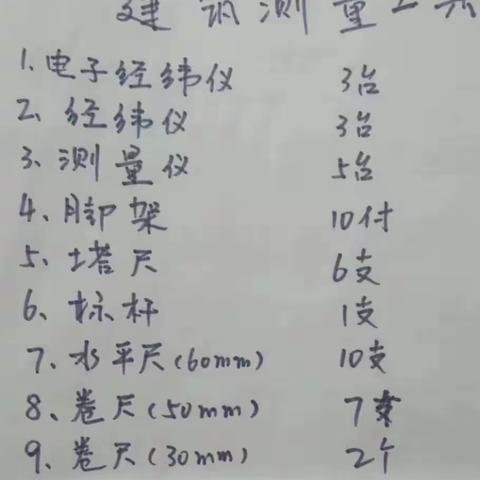 建筑测量工具
1.电子经纬仪 3台
2、经纬仪 3台
3、测量仪 5台
4、脚架 10付
5、塔尺 6支
6、标杆 1支
7、水平尺(60mm) 10支
8、卷尺(50mm) 7支
9、卷尺(30mm) 2个